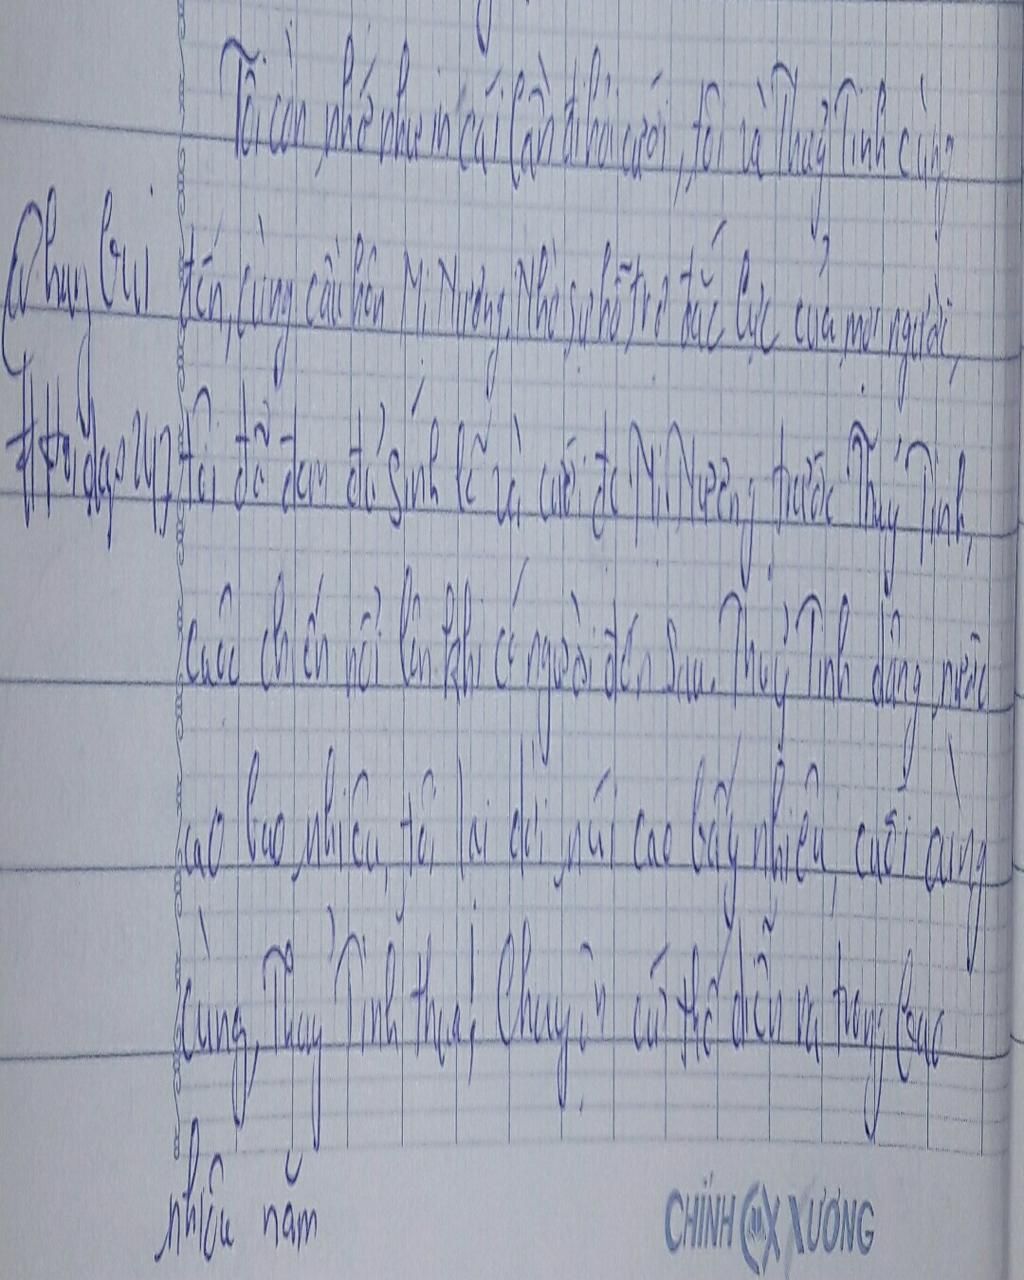 Tôi còn nhớ như in cái lần đi hỏi cưới, tôi và Thủy Tinh cùng
đến, cùng cầu hôn Mị Nương. Nhờ sự hỗ trợ đắc lực của mọi người,
tôi đã đem đủ sính lễ và cưới được Mị Nương trước Thủy Tinh,
cuộc chiến nổi lên khi có người đến sau. Thủy Tinh dâng nước
cao bao nhiêu, tôi lại dời núi cao bấy nhiêu, cuối cùng
cùng, Thủy Tinh thua! Chuyện cứ thế diễn ra trong bao
nhiêu năm
CHÍNH XƯƠNG